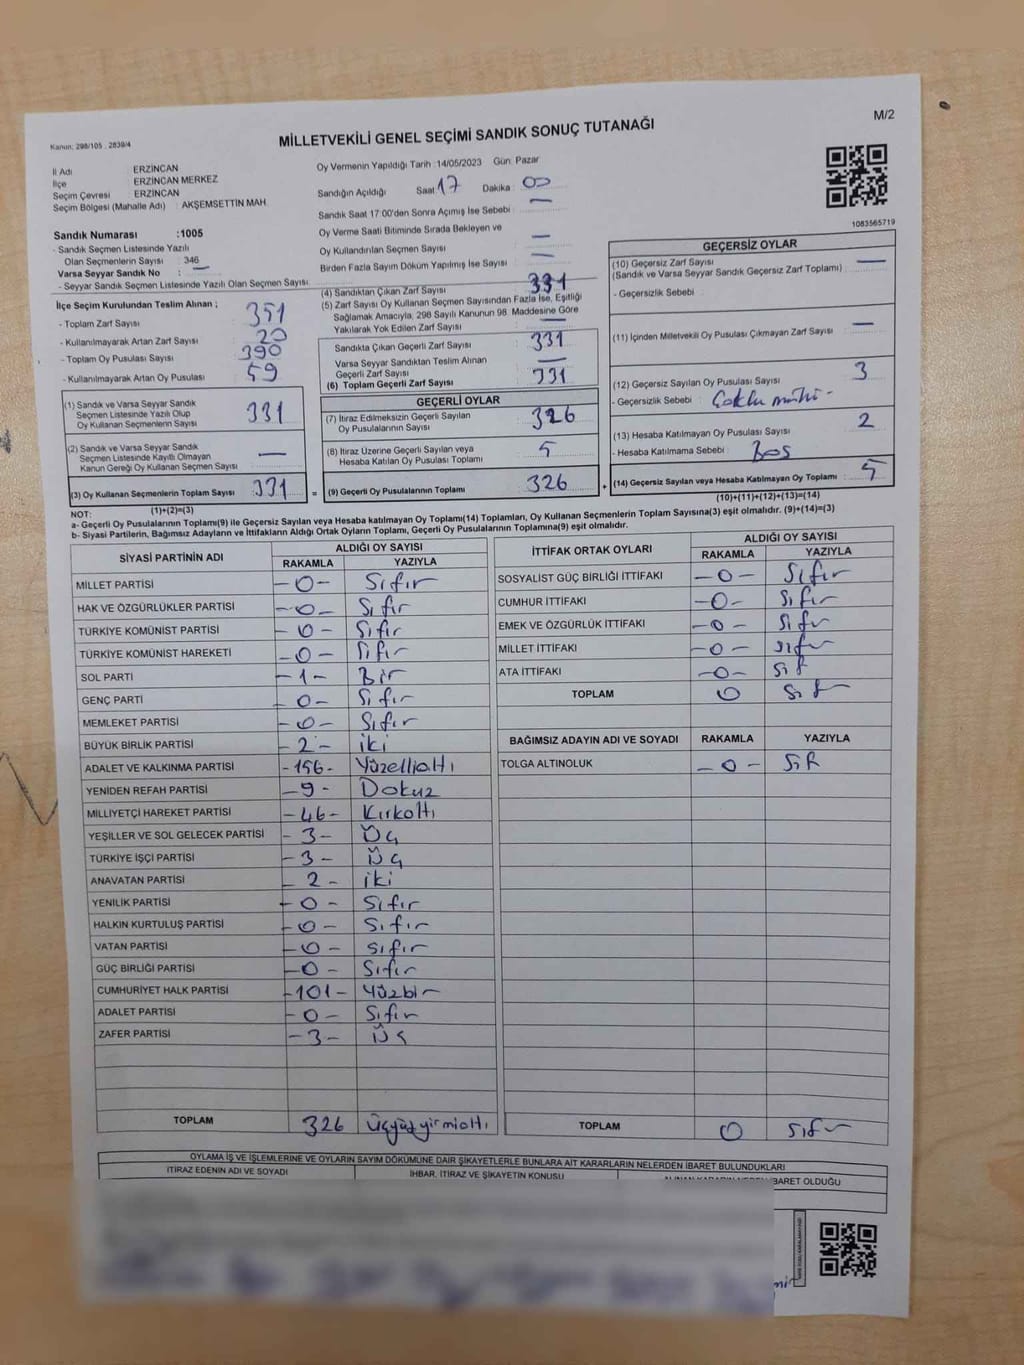 M/2
Kanun: 298/105 , 2839/4
MİLLETVEKİLİ GENEL SEÇİMİ SANDIK SONUÇ TUTANAĞI
İl Adı ERZİNCAN
İlçe ERZİNCAN MERKEZ
Seçim Çevresi ERZİNCAN
Seçim Bölgesi (Mahalle Adı) : AKŞEMSETTİN MAH
Oy Vermenin Yapıldığı Tarih :14/05/2023 Gün: Pazar
Sandığın Açıldığı Saat 17 Dakika : 00
Sandık Saat 17:00'den Sonra Açımış İse Sebebi : —
Oy Verme Saati Bitiminde Sırada Bekleyen ve
Oy Kullandırılan Seçmen Sayısı : —
Birden Fazla Sayım Döküm Yapılmış İse Sayısı : —
1083565719
Sandık Numarası :1005
- Sandık Seçmen Listesinde Yazılı
Olan Seçmenlerin Sayısı : 346
Varsa Seyyar Sandık No : —
- Seyyar Sandık Seçmen Listesinde Yazılı Olan Seçmen Sayısı:
İlçe Seçim Kurulundan Teslim Alınan ;
- Toplam Zarf Sayısı : 351
- Kullanılmayarak Artan Zarf Sayısı : 20
- Toplam Oy Pusulası Sayısı : 390
- Kullanılmayarak Artan Oy Pusulası : 59
(1) Sandık ve Varsa Seyyar Sandık
Seçmen Listesinde Yazılı Olup
Oy Kullanan Seçmenlerin Sayısı : 331
(2) Sandık ve Varsa Seyyar Sandık
Seçmen Listesinde Kayıtlı Olmayan
Kanun Gereği Oy Kullanan Seçmen Sayısı : —
(3) Oy Kullanan Seçmenlerin Toplam Sayısı : 331
(1)+(2)=(3)
(4) Sandıktan Çıkan Zarf Sayısı : 331
(5) Zarf Sayısı Oy Kullanan Seçmen Sayısından Fazla İse, Eşitliği
Sağlamak Amacıyla, 298 Sayılı Kanunun 98. Maddesine Göre
Yakılarak Yok Edilen Zarf Sayısı : —
Sandıkta Çıkan Geçerli Zarf Sayısı : 331
Varsa Seyyar Sandıktan Teslim Alınan
Geçerli Zarf Sayısı : —
(6) Toplam Geçerli Zarf Sayısı : 331
GEÇERLİ OYLAR
(7) İtiraz Edilmeksizin Geçerli Sayılan
Oy Pusulalarının Sayısı : 326
(8) İtiraz Üzerine Geçerli Sayılan veya
Hesaba Katılan Oy Pusulası Toplamı : 5
= (9) Geçerli Oy Pusulalarının Toplamı : 326
GEÇERSİZ OYLAR
(10) Geçersiz Zarf Sayısı : —
(Sandık ve Varsa Seyyar Sandık Geçersiz Zarf Toplamı)
- Geçersizlik Sebebi :
(11) İçinden Milletvekili Oy Pusulası Çıkmayan Zarf Sayısı : —
(12) Geçersiz Sayılan Oy Pusulası Sayısı : 3
- Geçersizlik Sebebi : Çoklu mühür
(13) Hesaba Katılmayan Oy Pusulası Sayısı : 2
- Hesaba Katılmama Sebebi : Boş
+ (14) Geçersiz Sayılan veya Hesaba Katılmayan Oy Toplamı : 5
(10)+(11)+(12)+(13)=(14)
NOT:
a- Geçerli Oy Pusulalarının Toplamı(9) ile Geçersiz Sayılan veya Hesaba katılmayan Oy Toplamı(14) Toplamları, Oy Kullanan Seçmenlerin Toplam Sayısına(3) eşit olmalıdır. (9)+(14)=(3)
b- Siyasi Partilerin, Bağımsız Adayların ve İttifakların Aldığı Ortak Oyların Toplamı, Geçerli Oy Pusulalarının Toplamına(9) eşit olmalıdır.
SİYASİ PARTİNİN ADI ALDIĞI OY SAYISI
RAKAMLA YAZIYLA
MİLLET PARTİSİ -0- Sıfır
HAK VE ÖZGÜRLÜKLER PARTİSİ -0- Sıfır
TÜRKİYE KOMÜNİST PARTİSİ -0- Sıfır
TÜRKİYE KOMÜNİST HAREKETİ -0- Sıfır
SOL PARTİ -1- Bir
GENÇ PARTİ 0- Sıfır
MEMLEKET PARTİSİ -0- Sıfır
BÜYÜK BİRLİK PARTİSİ -2- iki
ADALET VE KALKINMA PARTİSİ -156- Yüzellialtı
YENİDEN REFAH PARTİSİ -9- Dokuz
MİLLİYETÇİ HAREKET PARTİSİ -46- Kırkaltı
YEŞİLLER VE SOL GELECEK PARTİSİ -3- Üç
TÜRKİYE İŞÇİ PARTİSİ -3- Üç
ANAVATAN PARTİSİ -2- iki
YENİLİK PARTİSİ -0- Sıfır
HALKIN KURTULUŞ PARTİSİ -0- Sıfır
VATAN PARTİSİ -0- Sıfır
GÜÇ BİRLİĞİ PARTİSİ -0- Sıfır
CUMHURİYET HALK PARTİSİ -101- Yüzbir
ADALET PARTİSİ -0- Sıfır
ZAFER PARTİSİ -3- Üç
TOPLAM 326 üçyüzyirmialtı
İTTİFAK ORTAK OYLARI ALDIĞI OY SAYISI
RAKAMLA YAZIYLA
SOSYALİST GÜÇ BİRLİĞİ İTTİFAKI -0- Sıfır
CUMHUR İTTİFAKI -0- Sıfır
EMEK VE ÖZGÜRLÜK İTTİFAKI -0- Sıfır
MİLLET İTTİFAKI -0- Sıfır
ATA İTTİFAKI -0- Sıf
TOPLAM 0 Sıfır
BAĞIMSIZ ADAYIN ADI VE SOYADI RAKAMLA YAZIYLA
TOLGA ALTINOLUK -0-
TOPLAM 0 Sıfır
OYLAMA İŞ VE İŞLEMLERİNE VE OYLARIN SAYIM DÖKÜMÜNE DAİR ŞİKAYETLERLE BUNLARA AİT KARARLARIN NELERDEN İBARET BULUNDUKLARI
İTİRAZ EDENİN ADI VE SOYADI İHBAR, İTİRAZ VE ŞİKAYETİN KONUSU ALINAN KARARIN NEDEN İBARET OLDUĞU